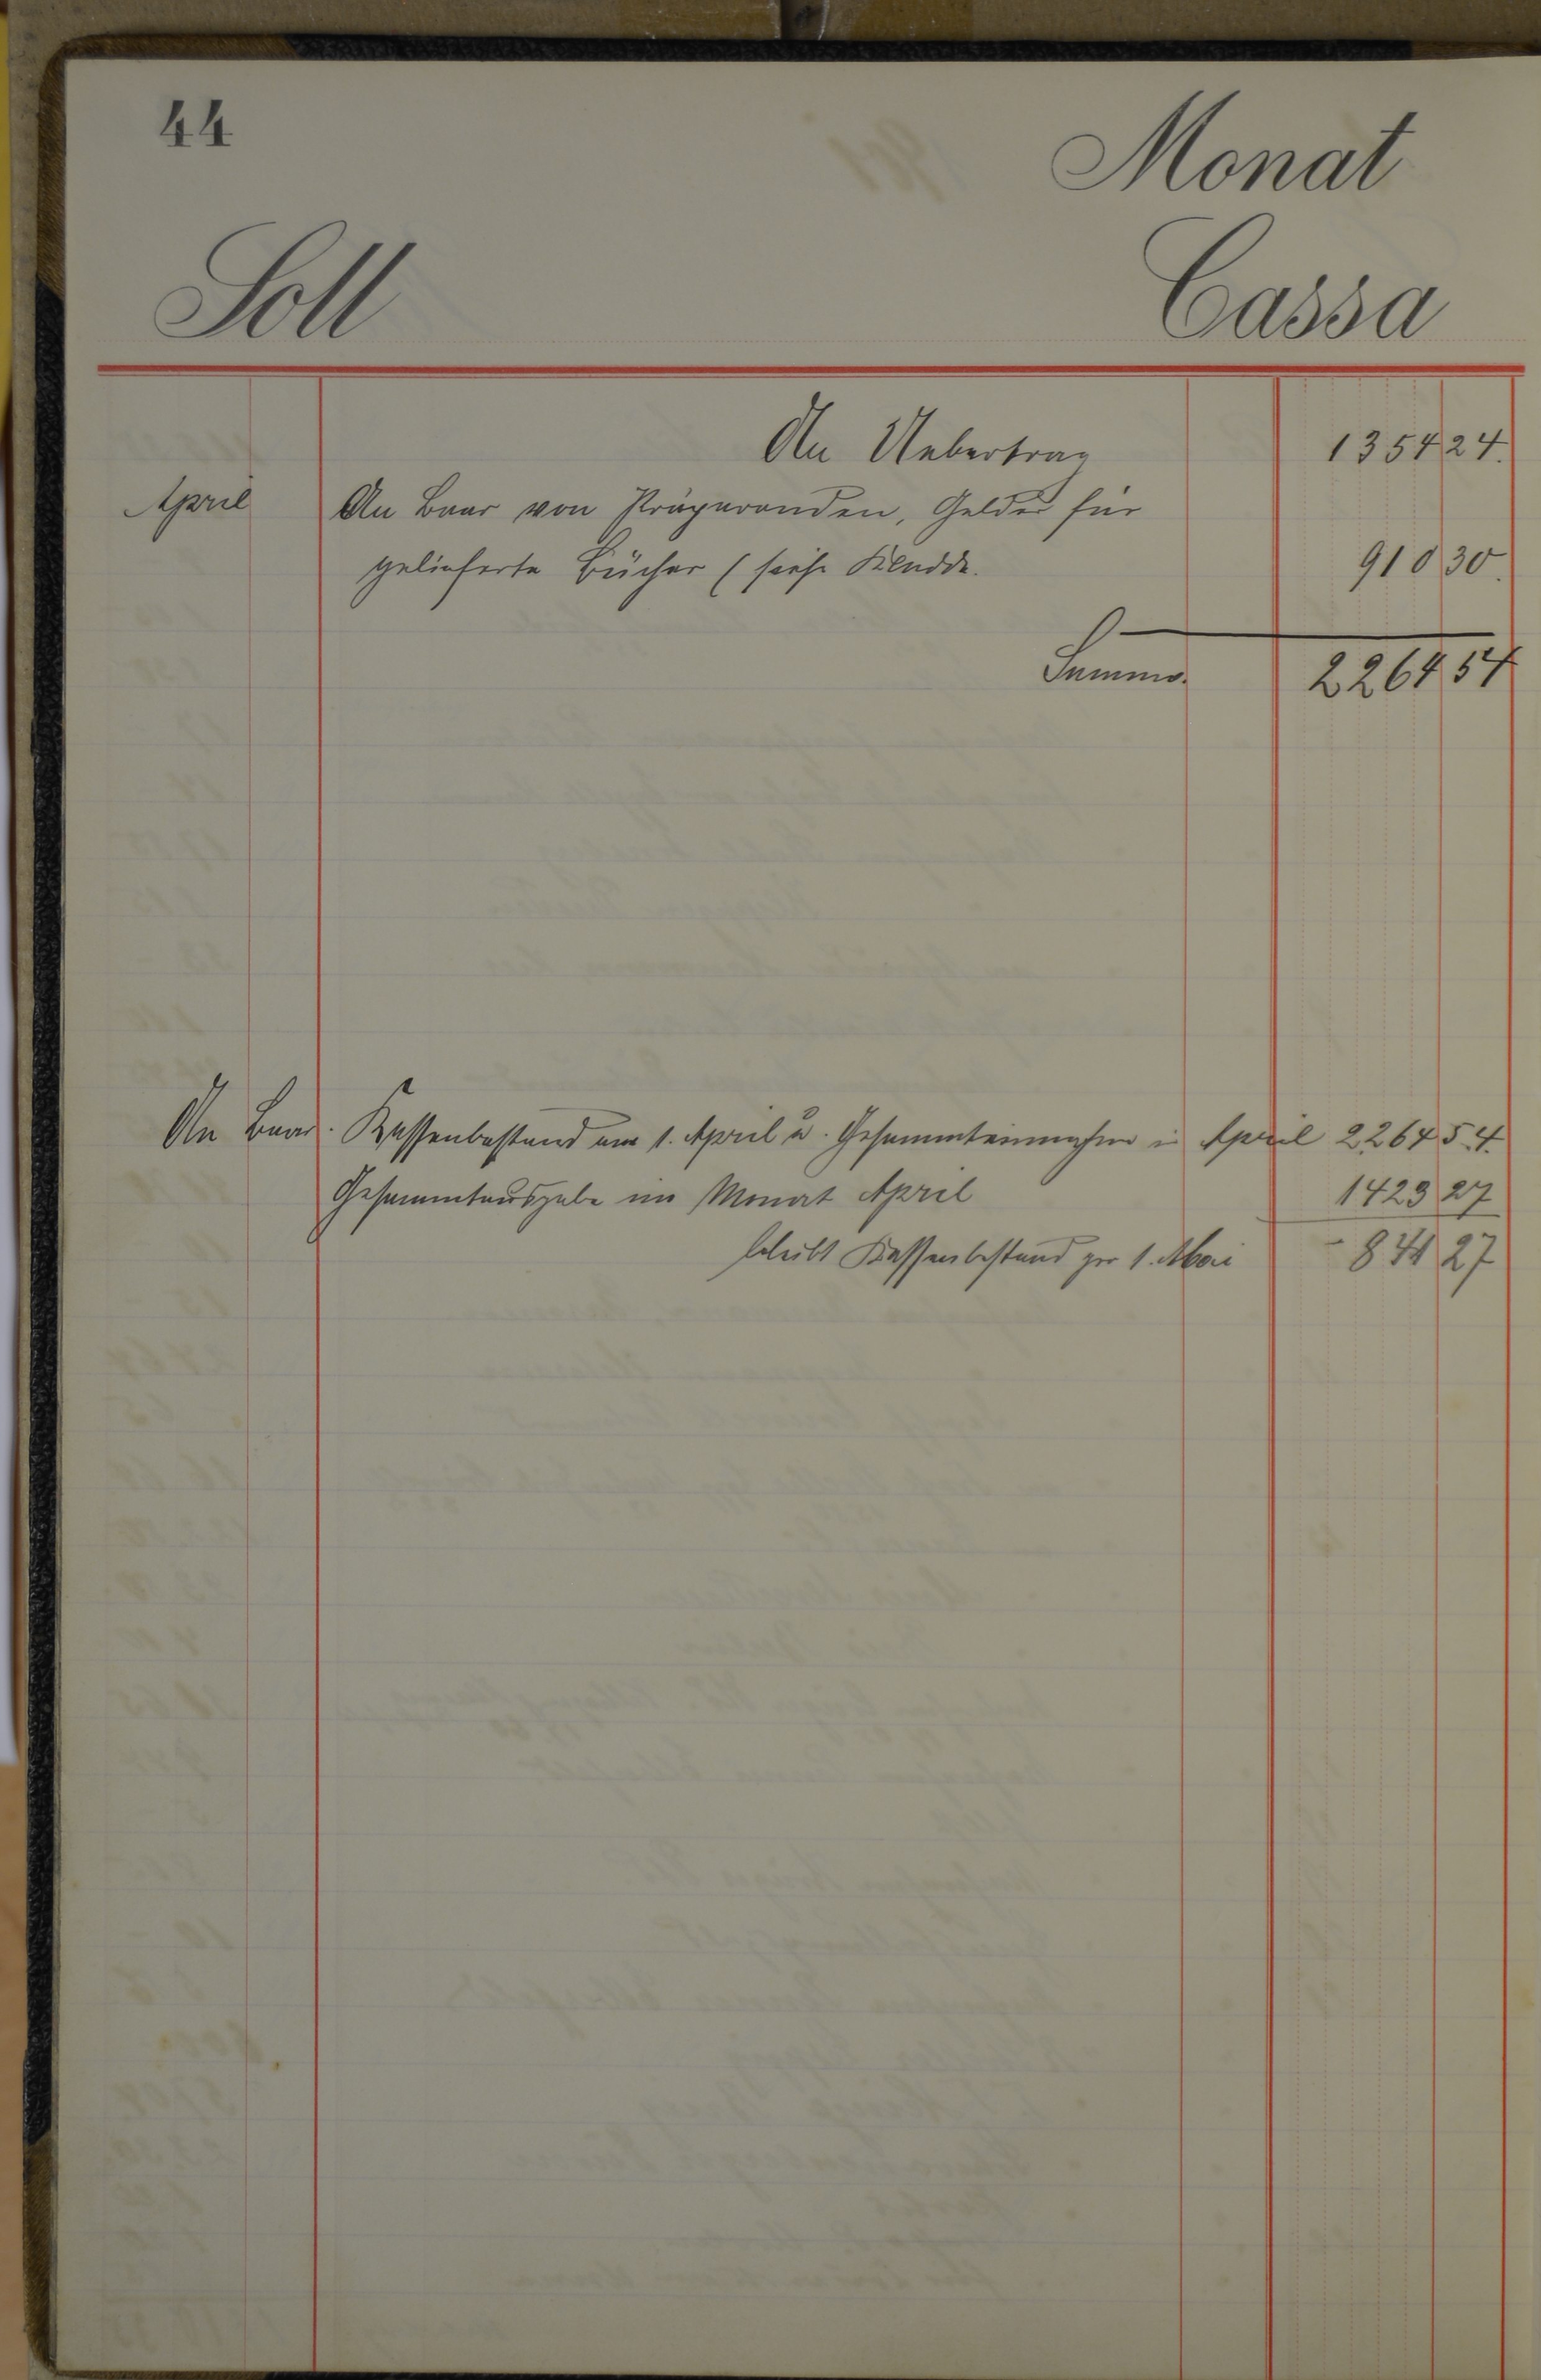 44
Monat
Soll
Cassa
An Uebertrag 1354 24.
April An Baar von Präparanden, Gelder für
gelieferte Bücher (siehe Kladde. 910 30.
Summa. 2264 54
An Baar. Kassenbestand am 1. April u. Gesammteinnahme i April 2264 54.
Gesammtausgabe im Monat April 1423 27
bleibt Kassenbestand zur 1. Mai - 841 27